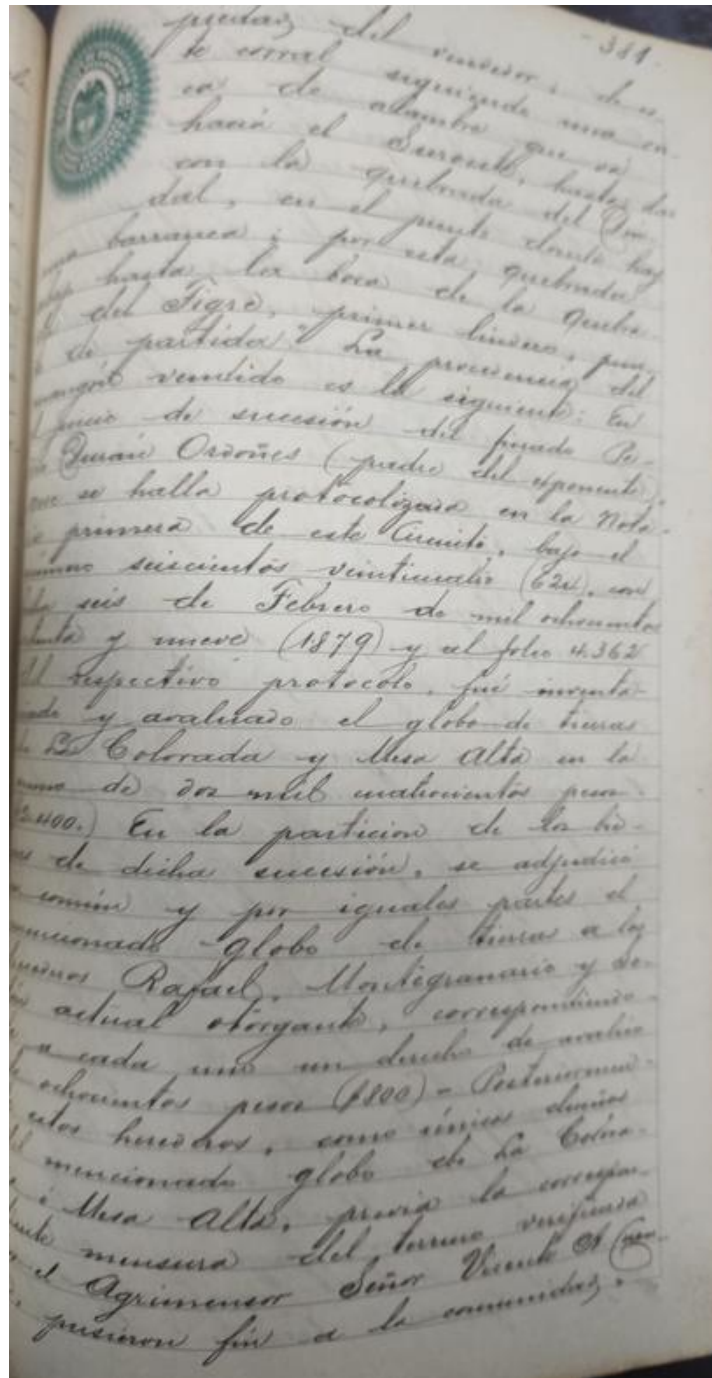 - 381 -
piedad del vendedor; de es-
te corral siguiendo una cer-
ca de alambre que va
hacia el Suroeste, hasta dar
con la quebrada del
dal, en el punto donde hay
una barranca; por esta quebrada
hasta la boca de la quebra
del Tigre, primer lindero, pun-
de partida." La procedencia del
vendido es la siguiente: En
juicio de sucesión del finado Pe-
Durán Ordoñes (padre del exponente),
se halla protocolizada en la Nota-
primera de este Circuito, bajo el
número seiscientos veinticuatro (624), con
seis de Febrero de mil ochocientos
y nueve (1879) y al folio 4.362
del respectivo protocolo, fué inventa-
riado y avaluado el globo de tierras
de La Colorada y Mesa Alta en la
suma de dos mil cuatrocientos pesos
2.400.) En la particion de los bie-
nes de dicha sucesión, se adjudicó
en común y por iguales partes el
mencionado globo de tierra a los
herederos Rafael, Montegranario y
actual otorgante, correspondiendo-
a cada uno un derecho de avalúo
de ochocientos pesos ($800) - Posteriormen-
estos herederos, como únicos dueños
del mencionado globo de La Colora-
i Mesa Alta, previa la correspon-
diente mensura del terreno verificada
el Agrimensor Señor Vicente A
pusieron fin a la comunidad,